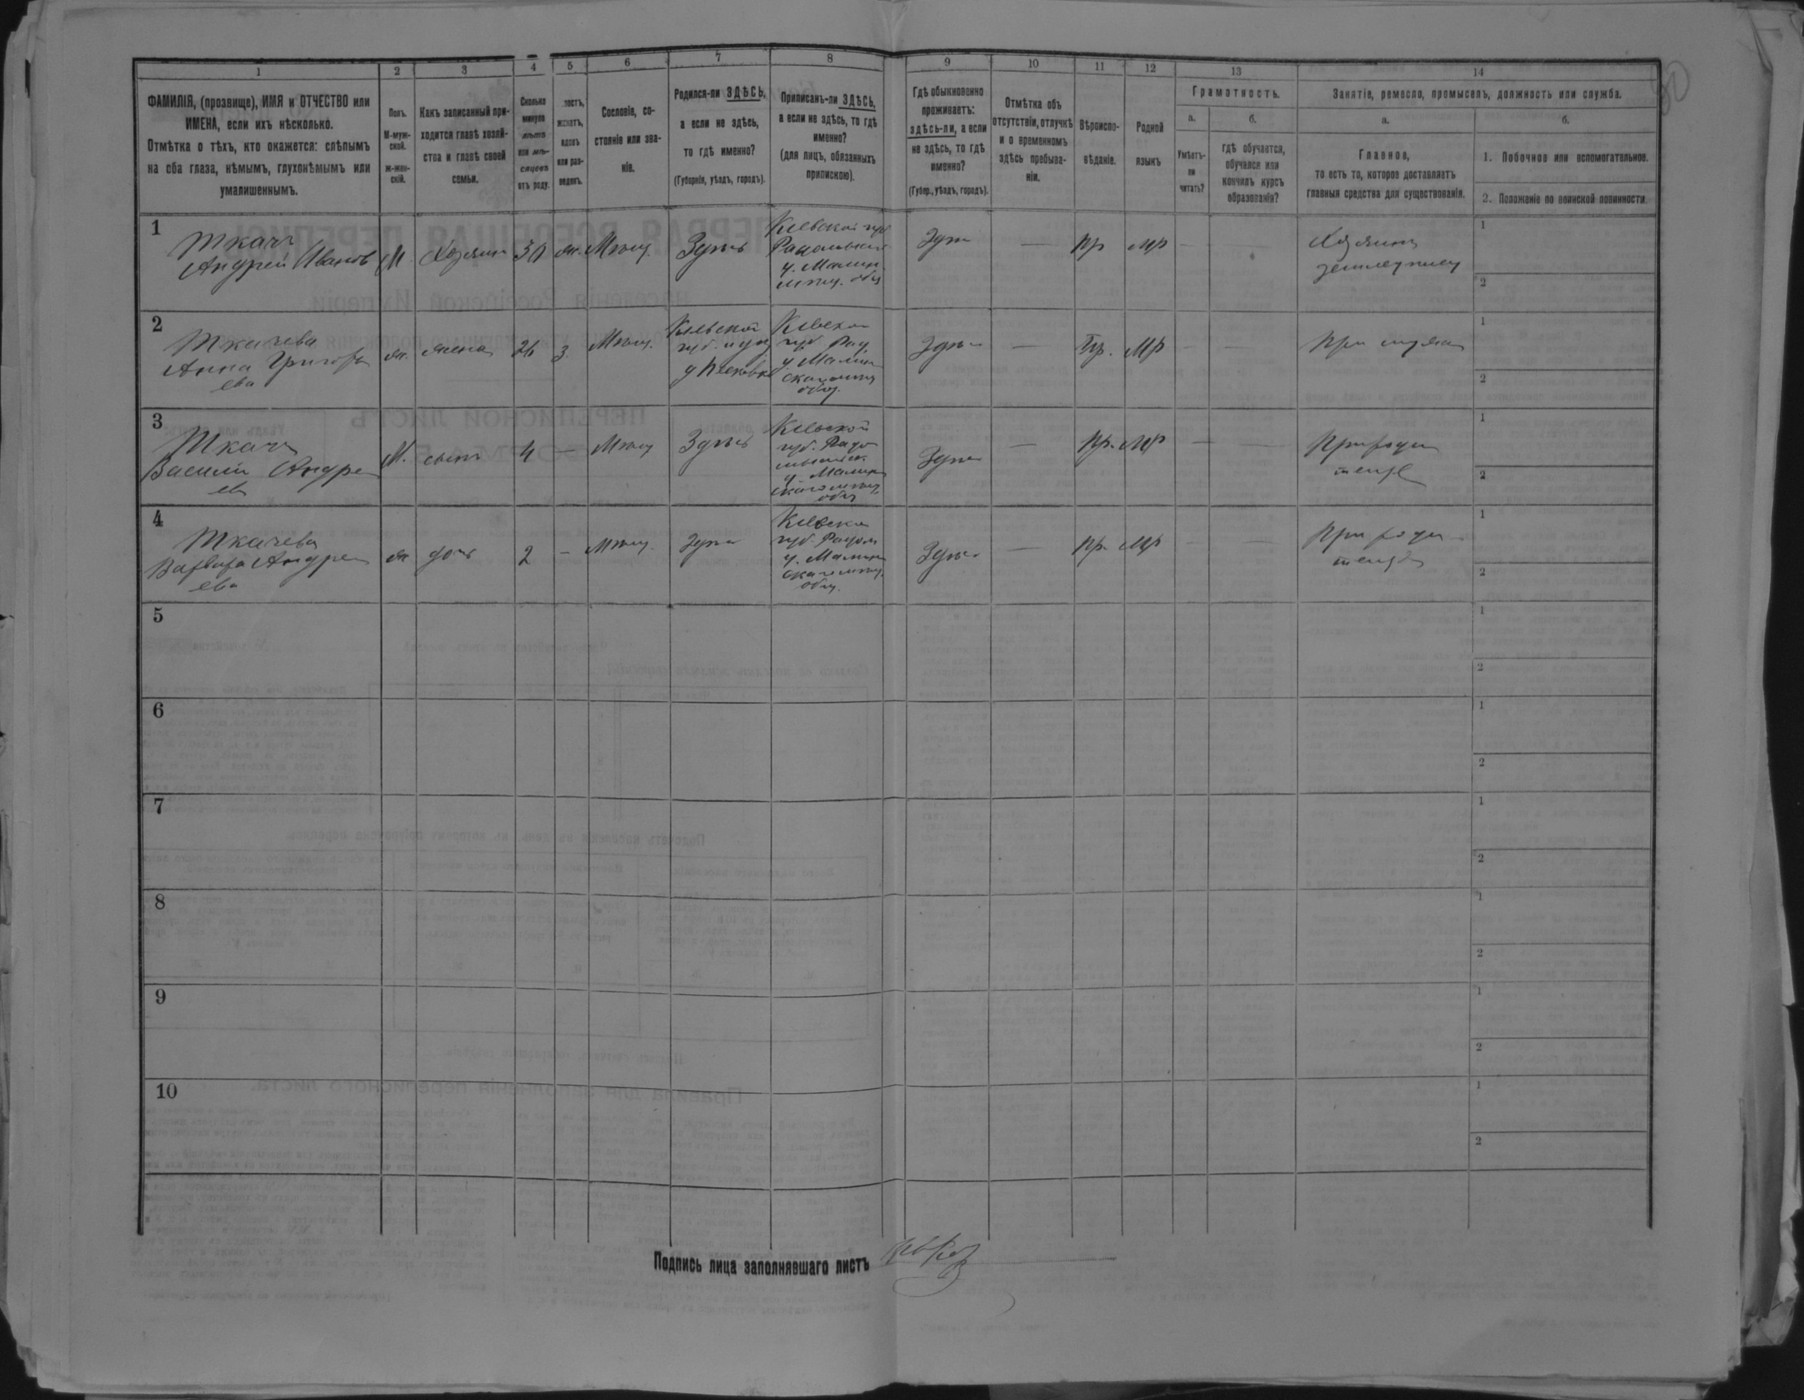 1 2 3 4 5 6 7 8 9 10 11 12 13 14
ФАМИЛІЯ, (прозвище), ИМЯ и ОТЧЕСТВО или
ИМЕНА, если ихъ нѣсколько.
Отмѣтка о тѣхъ, кто окажется: слѣпымъ
на оба глаза, нѣмымъ, глухонѣмымъ или
умалишеннымъ.
Полъ.
М-муж-
ской.
ж-жен-
скій.
Какъ записанный при-
ходится главѣ хозяй-
ства и главѣ своей
семьи.
Сколько
минуло
лѣтъ
или мѣ-
сяцевъ
отъ роду.
холостъ,
женатъ,
вдовъ
или раз-
веденъ.
Сословіе, со-
стояніе или зва-
ніе.
Родился-ли ЗДѢСЬ,
а если не здѣсь,
то гдѣ именно?
(Губернія, уѣздъ, городъ).
Приписанъ-ли ЗДѢСЬ,
а если не здѣсь, то гдѣ
именно?
(для лицъ, обязанныхъ
припискою).
Гдѣ обыкновенно
проживаетъ:
здѣсь-ли, а если
не здѣсь, то гдѣ
именно?
(Губер., уѣздъ, городъ).
Отмѣтка объ
отсутствіи, отлучкѣ
и о временномъ
здѣсь пребыва-
ніи.
Вѣроиспо-
вѣданіе.
Родной
языкъ
Грамотность.
а.
Умѣетъ-
ли
читать?
б.
гдѣ обучается,
обучался или
кончилъ курсъ
образованія?
Занятіе, ремесло, промыселъ, должность или служба.
а.
Главное,
то есть то, которое доставляетъ
главныя средства для существованія.
б.
1. Побочное или вспомогательное.
2. Положеніе по воинской повинности.
1
Ткачъ
Андрей Иванов
М Хозяин 30 жен. Мѣщ. Здѣсь
Кіевской губ
Радомысльск
у. Малин.
мѣщ. общ
Здѣс — Пр Мр — —
Хозяинъ
земледѣлец
1
2
2
Ткачева
Анна Григорь
ева
ж. жена 26 з. Мѣщ.
Кіевской
губ.
Кіевской
губ Рад
у Малин
ск мѣщ
общ.
Здѣсь — Пр. Мр — —
При мужѣ
1
2
3
Ткачъ
Василій Андре
ев
М. сынъ 4 — Мѣщ Здѣсь
Кіевской
губ. Радо
мысльск
у Малин
ского мѣщ
общ
Здѣсь — Пр. Мр — —
При роди
телях
1
2
4
Ткачева
Варвара Андре
ева
ж дочь 2 — Мѣщ. Здѣс
Кіевской
губ. Радом
у. Малин
ского мѣщ.
общ.
Здѣсь — Пр. Мр — —
При роди
телях
1
2
5
1
2
6
1
2
7
1
2
8
1
2
9
1
2
10
1
2
Подпись лица заполнявшаго листъ